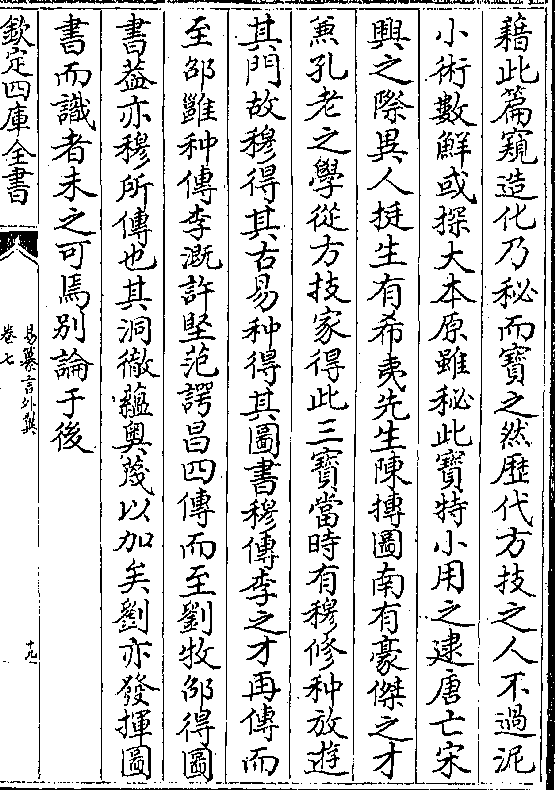 藉此篇窺造化乃秘而寶之然歴代方技之人不過泥
小術數鮮或探大本原雖秘此寶特小用之逮唐亡宋
興之際異人挺生有希夷先生陳摶圖南有豪傑之才
兼孔老之學從方技家得此三寶當時有穆修种放遊
其門故穆得其古易种得其圖書穆傳李之才再傳而
至邵雖种傳李溉許堅范諤昌四傳而至劉牧邵得圖
書葢亦穆所傳也其洞徹蘊奥蔑以加矣劉亦發揮圖
書而識者未之可焉别論于後
欽定四庫全書
易纂言外翼
卷七
十九